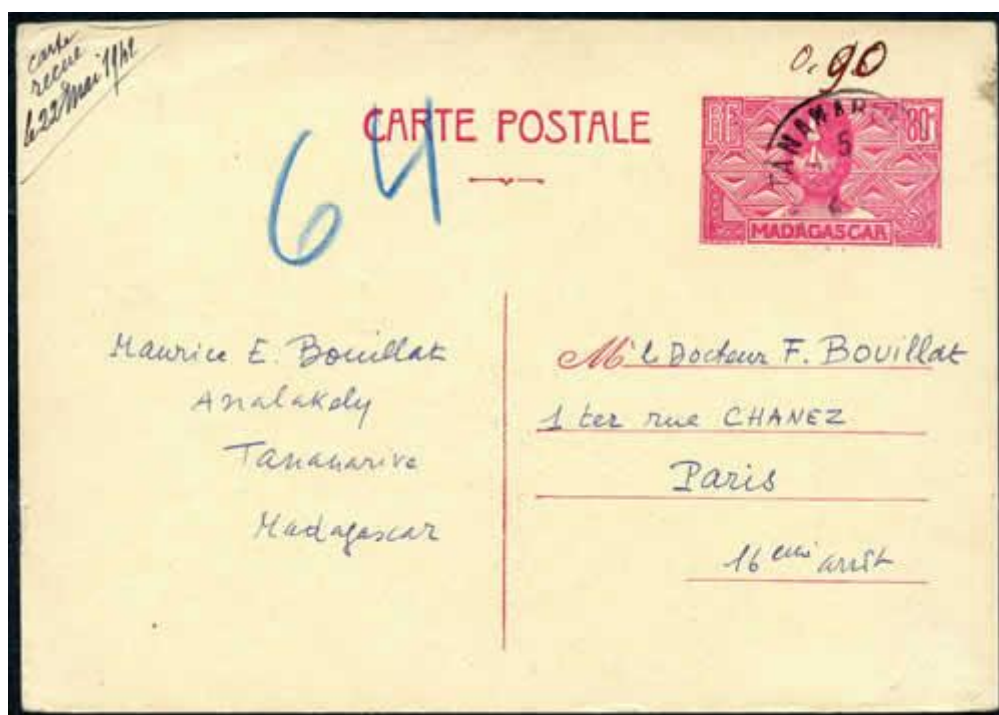 carte
reçue
le 22 Mai 1942
0,90
CARTE POSTALE
64
RF
80c
TANANARIVE
5
MADAGASCAR
Maurice E. Bouillat
Analakely
Tananarive
Madagascar
Mr le Docteur F. BOUILLAT
1 ter rue CHANEZ
Paris
16 eme arrdt